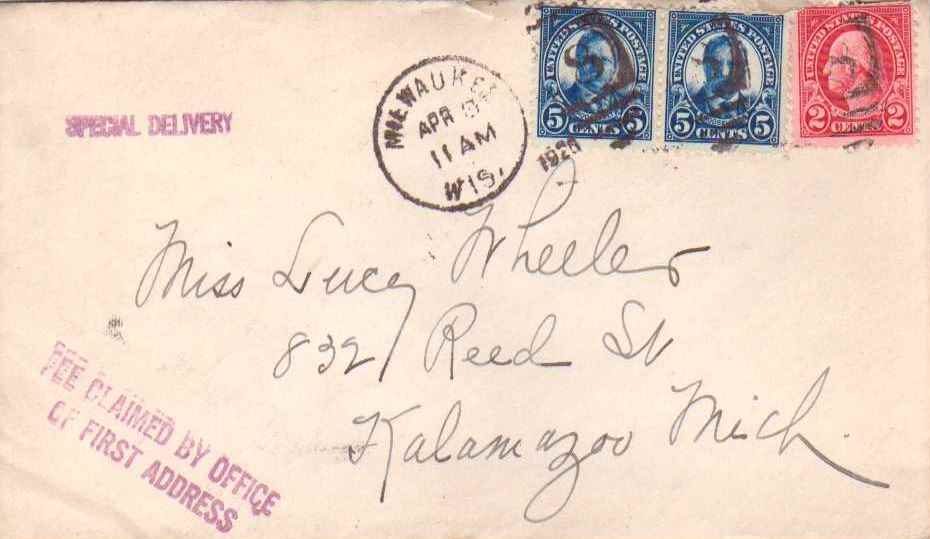 SPECIAL DELIVERY
MILWAUKEE
APR
11 AM
WIS.
UNITED STATES POSTAGE
5 CENTS 5
UNITED STATES POSTAGE
5 CENTS 5
UNITED STATES POSTAGE
2 CENTS 2
Miss Lucy Wheeler
832 Reed St
Kalamazoo Mich.
FEE CLAIMED BY OFFICE
OF FIRST ADDRESS